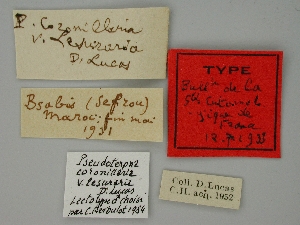 P. coronillaria
v. lesuraria
D. Lucas
TYPE
Bull. de la
Sté Entomol
de
France
1933
Bsabis (Sefrou)
Maroc: fin mai
1931
Pseudoterpna
coronillaria
v. lesuraria
D. Lucas
Lectotype choisi
par C. Herbulot 1954
Coll. D. Lucas
C.H. acq. 1952